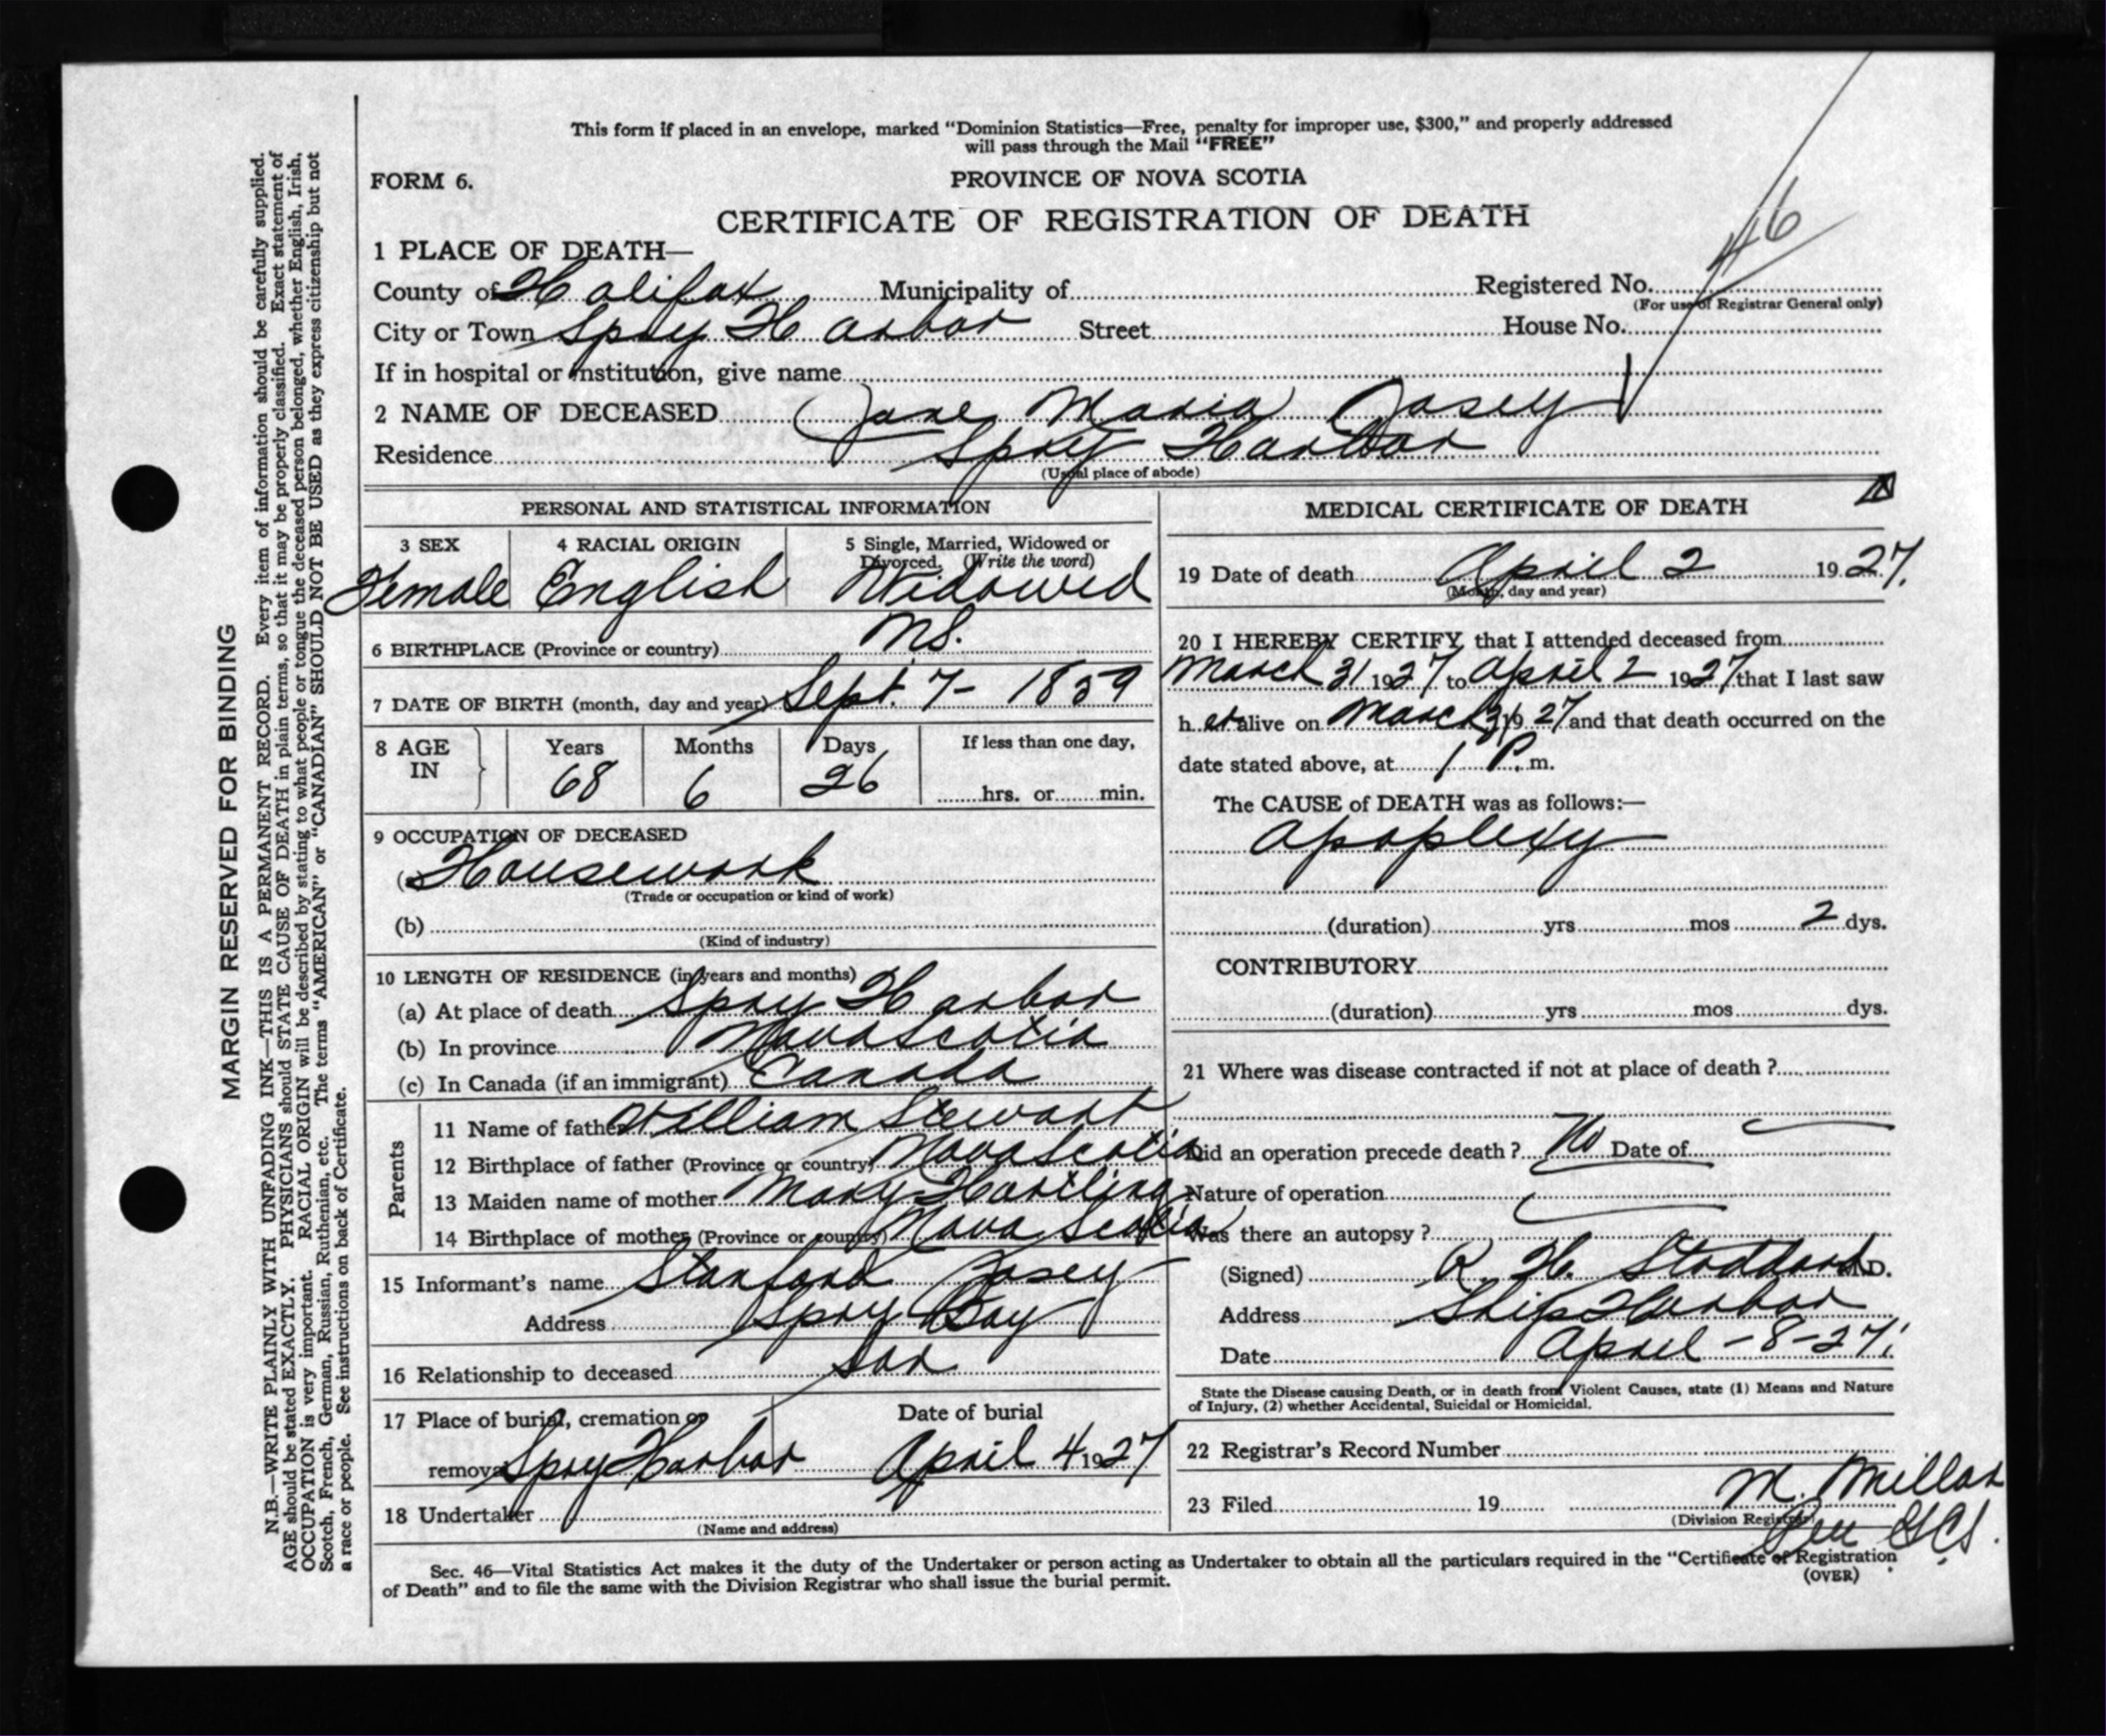 This form if placed in an envelope, marked "Dominion Statistics—Free, penalty for improper use, $300," and properly addressed
will pass through the Mail "FREE"
FORM 6.
PROVINCE OF NOVA SCOTIA
CERTIFICATE OF REGISTRATION OF DEATH
46
1 PLACE OF DEATH—
County of Halifax Municipality of Registered No.
(For use of Registrar General only)
City or Town Spry Harbor Street House No.
If in hospital or institution, give name
2 NAME OF DECEASED Jane Maria Josey
Residence Spry Harbor
(Usual place of abode)
PERSONAL AND STATISTICAL INFORMATION
3 SEX 4 RACIAL ORIGIN 5 Single, Married, Widowed or
Divorced. (Write the word)
Female English Widowed
6 BIRTHPLACE (Province or country) NS.
7 DATE OF BIRTH (month, day and year) Sept. 7 - 1859
8 AGE IN Years Months Days If less than one day,
68 6 26 hrs. or min.
9 OCCUPATION OF DECEASED
( Housework
(Trade or occupation or kind of work)
(b)
(Kind of industry)
10 LENGTH OF RESIDENCE (in years and months)
(a) At place of death Spry Harbor
(b) In province Nova Scotia
(c) In Canada (if an immigrant) Canada
Parents
11 Name of father William Stewart
12 Birthplace of father (Province or country) Nova Scotia
13 Maiden name of mother Mary Hartling
14 Birthplace of mother (Province or country) Nova Scotia
15 Informant's name Stanford Josey
Address Spry Bay
16 Relationship to deceased Son
17 Place of burial, cremation or Date of burial
removal Spry Harbor April 4 1927
18 Undertaker
(Name and address)
MEDICAL CERTIFICATE OF DEATH
19 Date of death April 2 1927.
(Month, day and year)
20 I HEREBY CERTIFY, that I attended deceased from
March 31 1927 to April 2 1927 that I last saw
h er alive on March 31 1927 and that death occurred on the
date stated above, at 1 P. m.
The CAUSE of DEATH was as follows:—
Apoplexy
(duration) yrs mos 2 dys.
CONTRIBUTORY
(duration) yrs mos dys.
21 Where was disease contracted if not at place of death ?
Did an operation precede death ? No Date of
Nature of operation
Was there an autopsy ?
(Signed) R. H. Stoddard M.D.
Address Ship Harbor
Date April - 8 - 27.
State the Disease causing Death, or in death from Violent Causes, state (1) Means and Nature
of Injury, (2) whether Accidental, Suicidal or Homicidal.
22 Registrar's Record Number
23 Filed 19 M. Millar
(Division Registrar)
Per
Sec. 46—Vital Statistics Act makes it the duty of the Undertaker or person acting as Undertaker to obtain all the particulars required in the "Certificate of Registration
of Death" and to file the same with the Division Registrar who shall issue the burial permit.
(OVER)
MARGIN RESERVED FOR BINDING
N.B.—WRITE PLAINLY WITH UNFADING INK—THIS IS A PERMANENT RECORD. Every item of information should be carefully supplied.
AGE should be stated EXACTLY. PHYSICIANS should STATE CAUSE OF DEATH in plain terms, so that it may be properly classified. Exact statement of
OCCUPATION is very important. RACIAL ORIGIN will be described by stating to what people or tongue the deceased person belonged, whether English, Irish,
Scotch, French, German, Russian, Ruthenian, etc. The terms "AMERICAN" or "CANADIAN" SHOULD NOT BE USED as they express citizenship but not
a race or people. See instructions on back of Certificate.